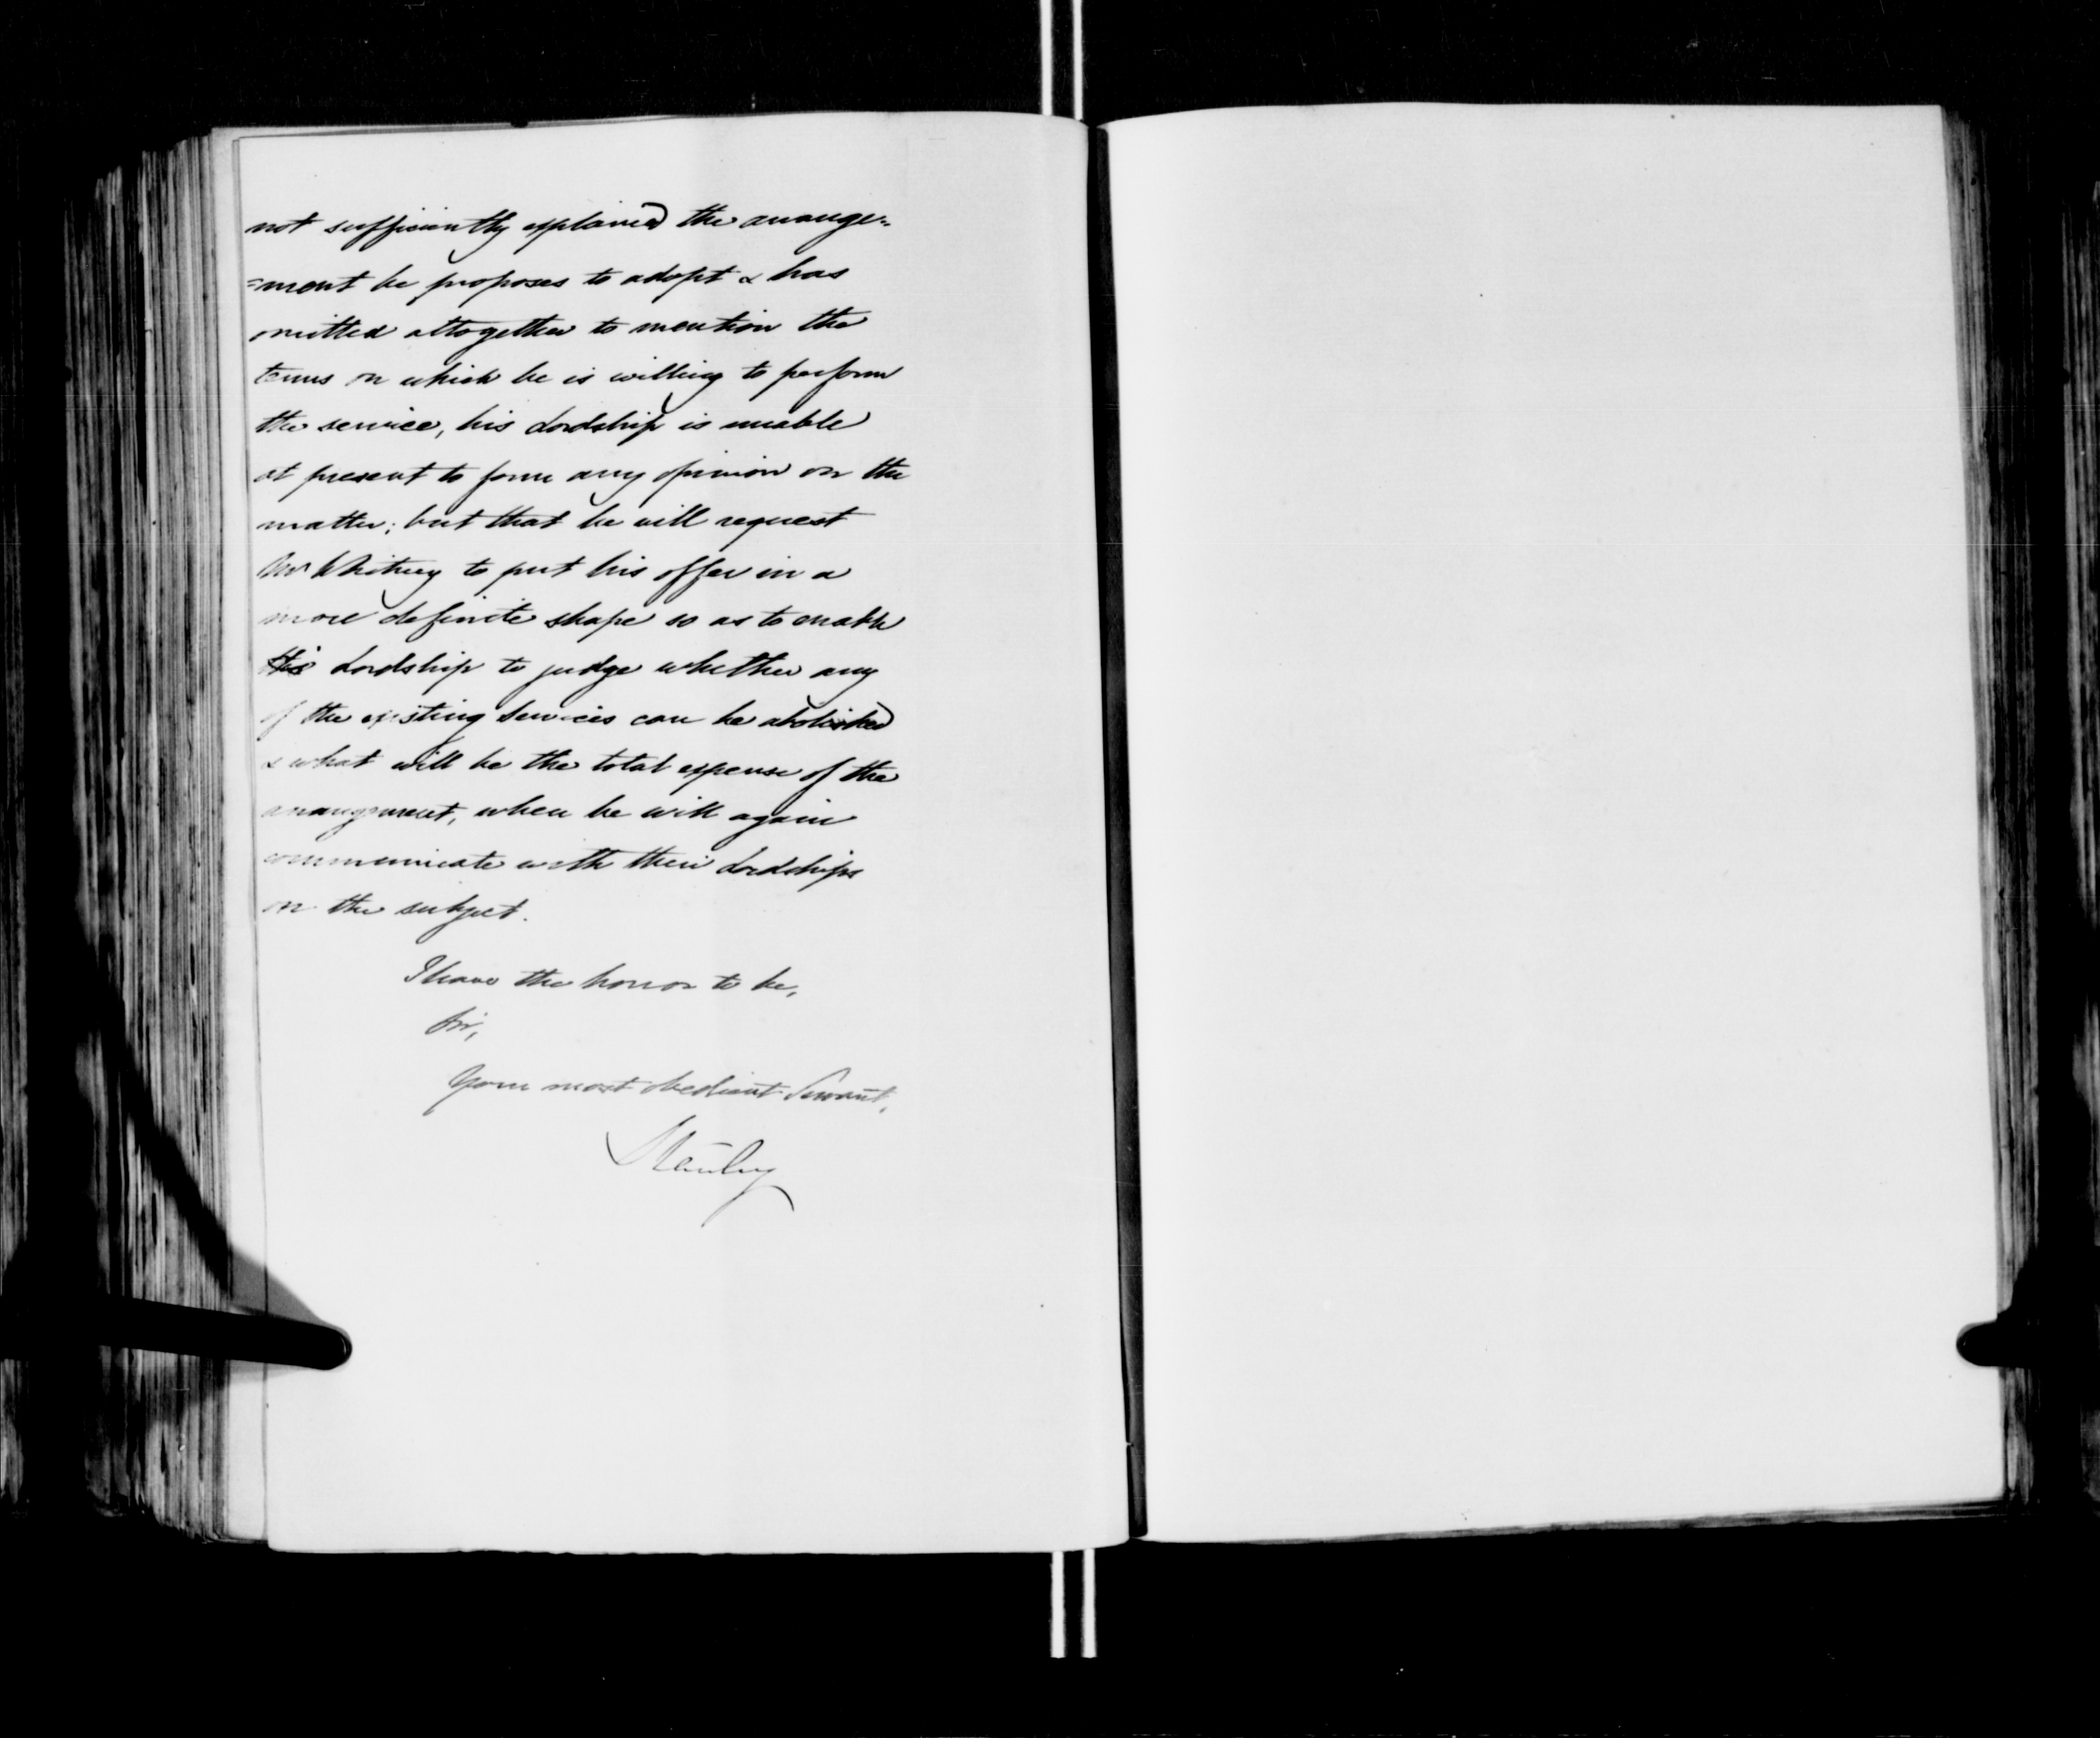 not sufficiently explained the arrange=
=ment he proposes to adopt & has
omitted altogether to mention the
terms on which he is willing to perform
the service, his Lordship is unable
at present to form any opinion on the
matter; but that he will request
Mr Whitney to put his offer in a
more definite shape so as to enable
His Lordship to judge whether any
of the existing Services can be abolished
& what will be the total expense of the
arrangement, when he will again
communicate with their Lordships
on the subject.
I have the honor to be,
Sir,
Your most obedient Servant,
Stanley